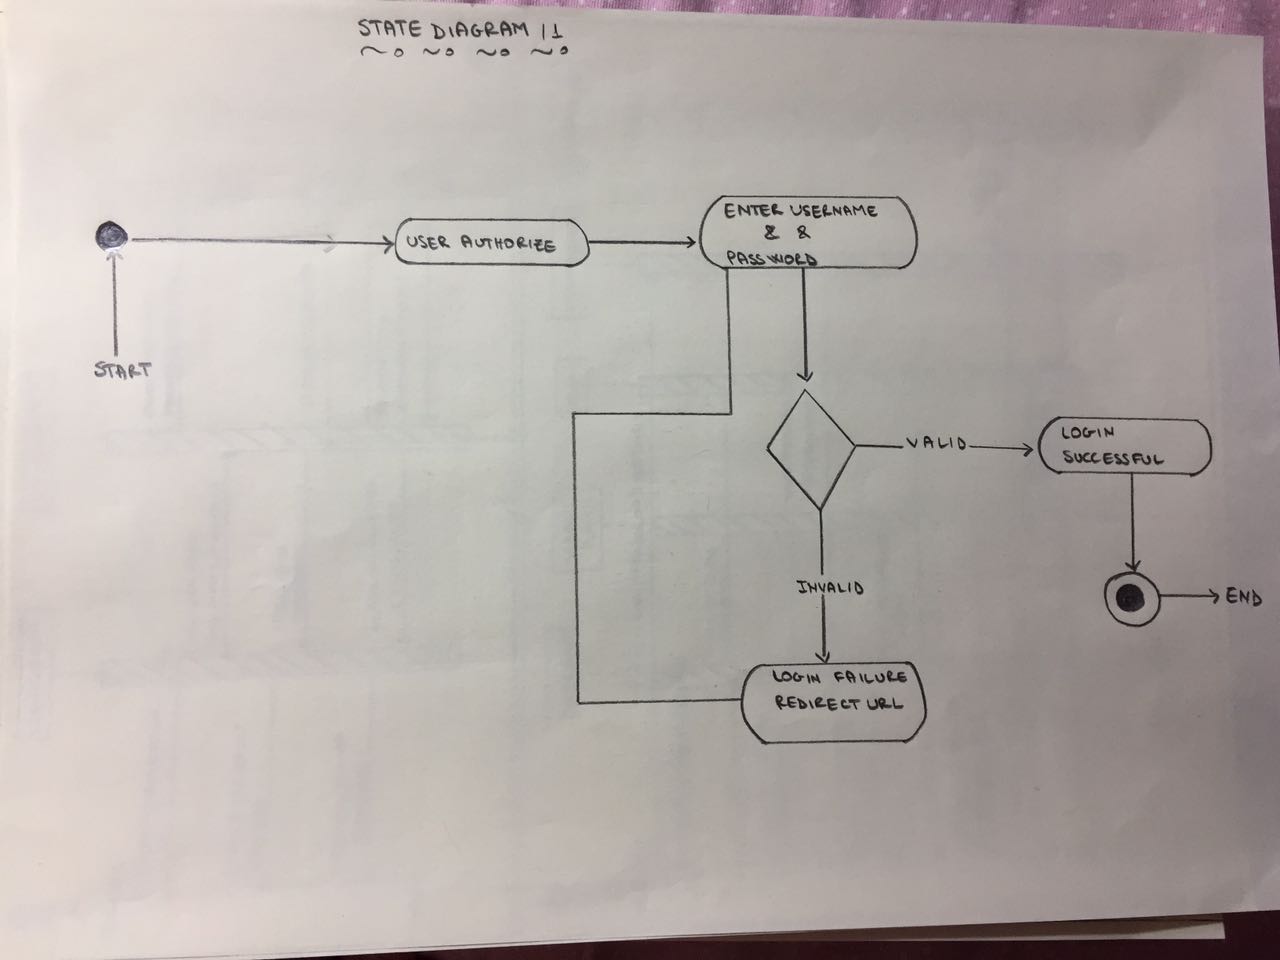 STATE DIAGRAM 11
USER AUTHORIZE
ENTER USERNAME
& &
PASSWORD
START
VALID
LOGIN
SUCCESSFUL
INVALID
END
LOGIN FAILURE
REDIRECT URL